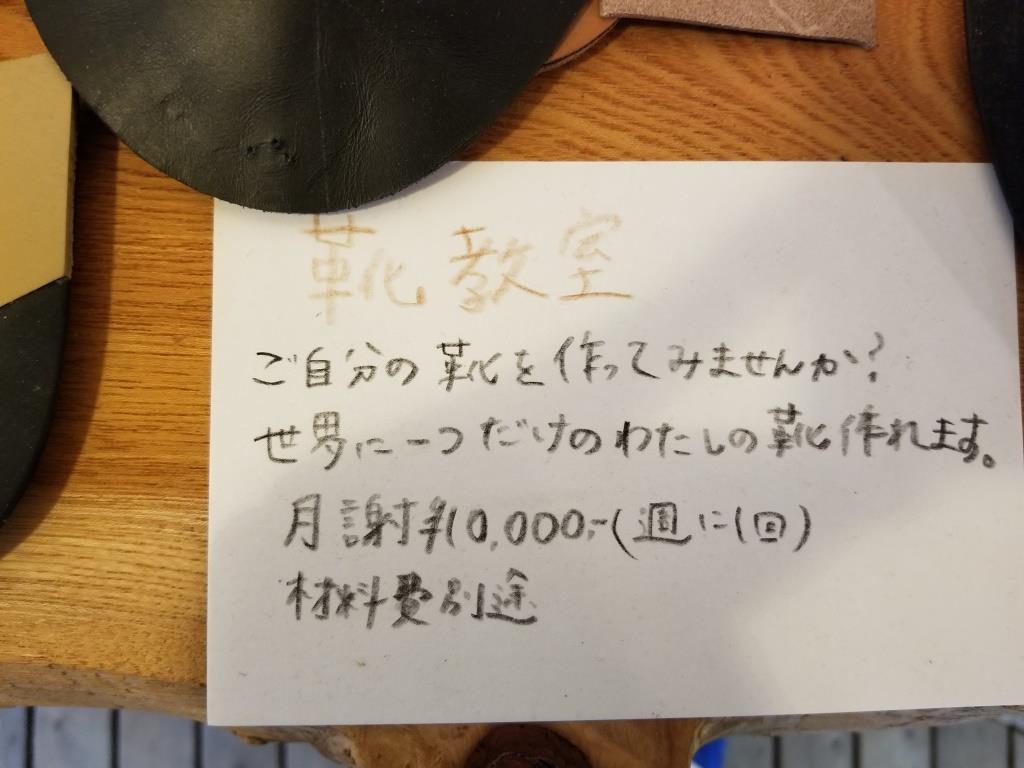 靴教室
ご自分の靴を作ってみませんか?
世界に一つだけのわたしの靴作れます。
月謝¥10,000-(週に1回)
材料費別途